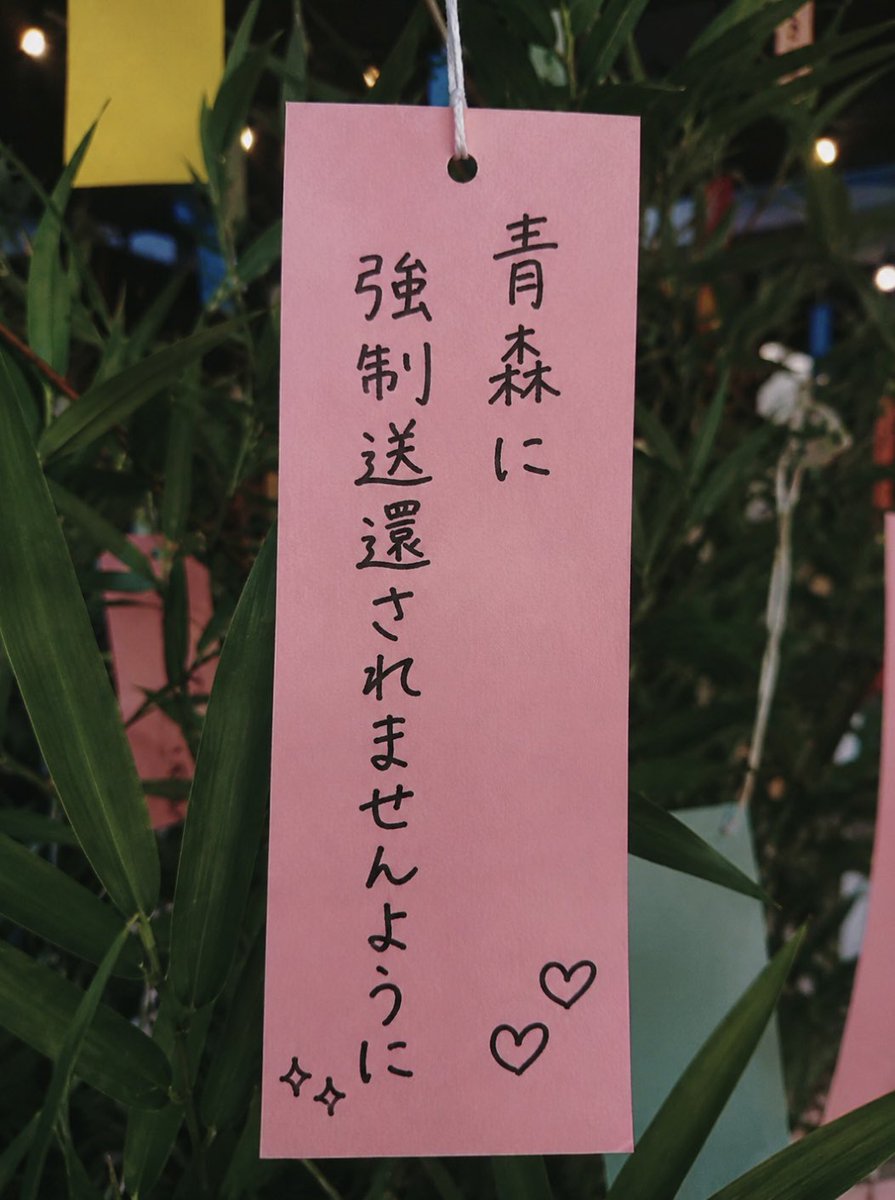 青森に
強制送還されませんように